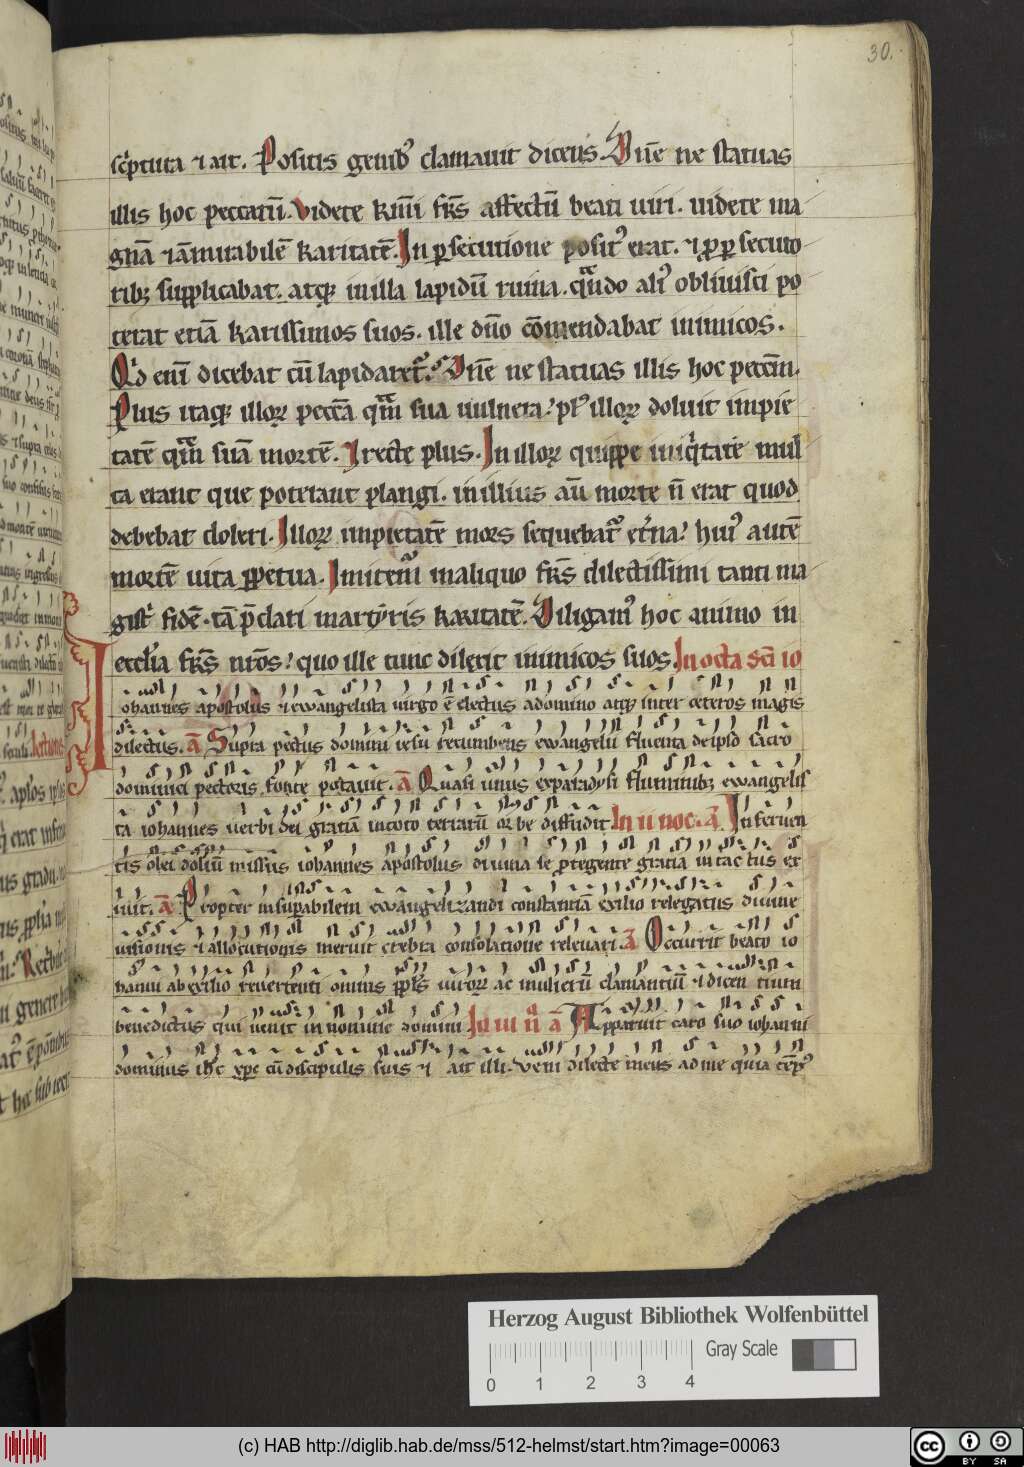 30.
sc̓ptura ⁊ ait. Positis genib; clamauit dicens. Dn̄e ne statuas
illis hoc peccatū. Videte k̄mi fr̄s affectū beati uiri. uidete ma
gnā ⁊ ām̄irabilē karitatē. In ꝑsecutione posit᷒ erat. ⁊ ꝓ ꝑsecuto
rib; supplicabat. atq; in illa lapidū ruina. qn̄do ali᷒ obliuisci po
terat etiā karissimos suos. ille dn̄o cōmendabat inimicos.
Qd enī dicebat cū lapidaret᷒. Dn̄e ne statuas illis hoc peccm̄.
Plus itaq; illoꝝ pecc̄a qm̄ sua uulnera. pl᷒ illoꝝ doluit impie
tatē qm̄ suā mortē. I recte plus. In illoꝝ quippe iniq̇tate mul
ta erant que poterant plangi. in illius aū morte n̄ erat quod
debebat doleri. Illoꝝ impietatē mors sequebat᷒ et̄na. hui᷒ autē
mortē uita ꝑpetua. Imitem᷒ in aliquo fr̄s dilectissimi tanti ma
gistˀ fidē. tā p̄clari martyris karitatē. Diligam᷒ hoc animo in
ecclˀia fr̄s nr̄os. quo ille tunc dilexit inimicos suos. In octa sc̄i io
Iohannes apostolus ⁊ ewangelista uirgo ē electus a domino atq; inter ceteros magis
dilectus. a᷒ Supra pectus domini iesu recumbens ewangelii fluenta de ipso sacro
dominici pectoris fonte potauit. a᷒ Quasi unus ex paradysi fluminib; ewangelis
ta iohannes uerbi dei gratiā in toto terrarū orbe diffudit In ii noc. a᷒ In feruen
tis olei doliū missus iohannes apostolus diuina se protegente gratia intactus ex
iuit. a᷒ Propter insuꝑabilem ewangelizandi constantiā exilio relegatus diuine
uisionis ⁊ allocutionis meruit crebra consolatione releuari. a᷒ Occurrit beato io
hanni ab exilio reuertenti omnis ppl̄s uiroꝝ ac mulierū clamantiū ⁊ dicentium
benedictus qui uenit in nomine domini In iii n̄ a᷒ Apparuit caro suo iohanni
dominus ihc̄ xpc̄ cū discipulis suis ⁊ ait illi. Veni dilecte meus ad me quia tēp᷒
Herzog August Bibliothek Wolfenbüttel
Gray Scale
0 1 2 3 4
(c) HAB http://diglib.hab.de/mss/512-helmst/start.htm?image=00063
cc BY SA